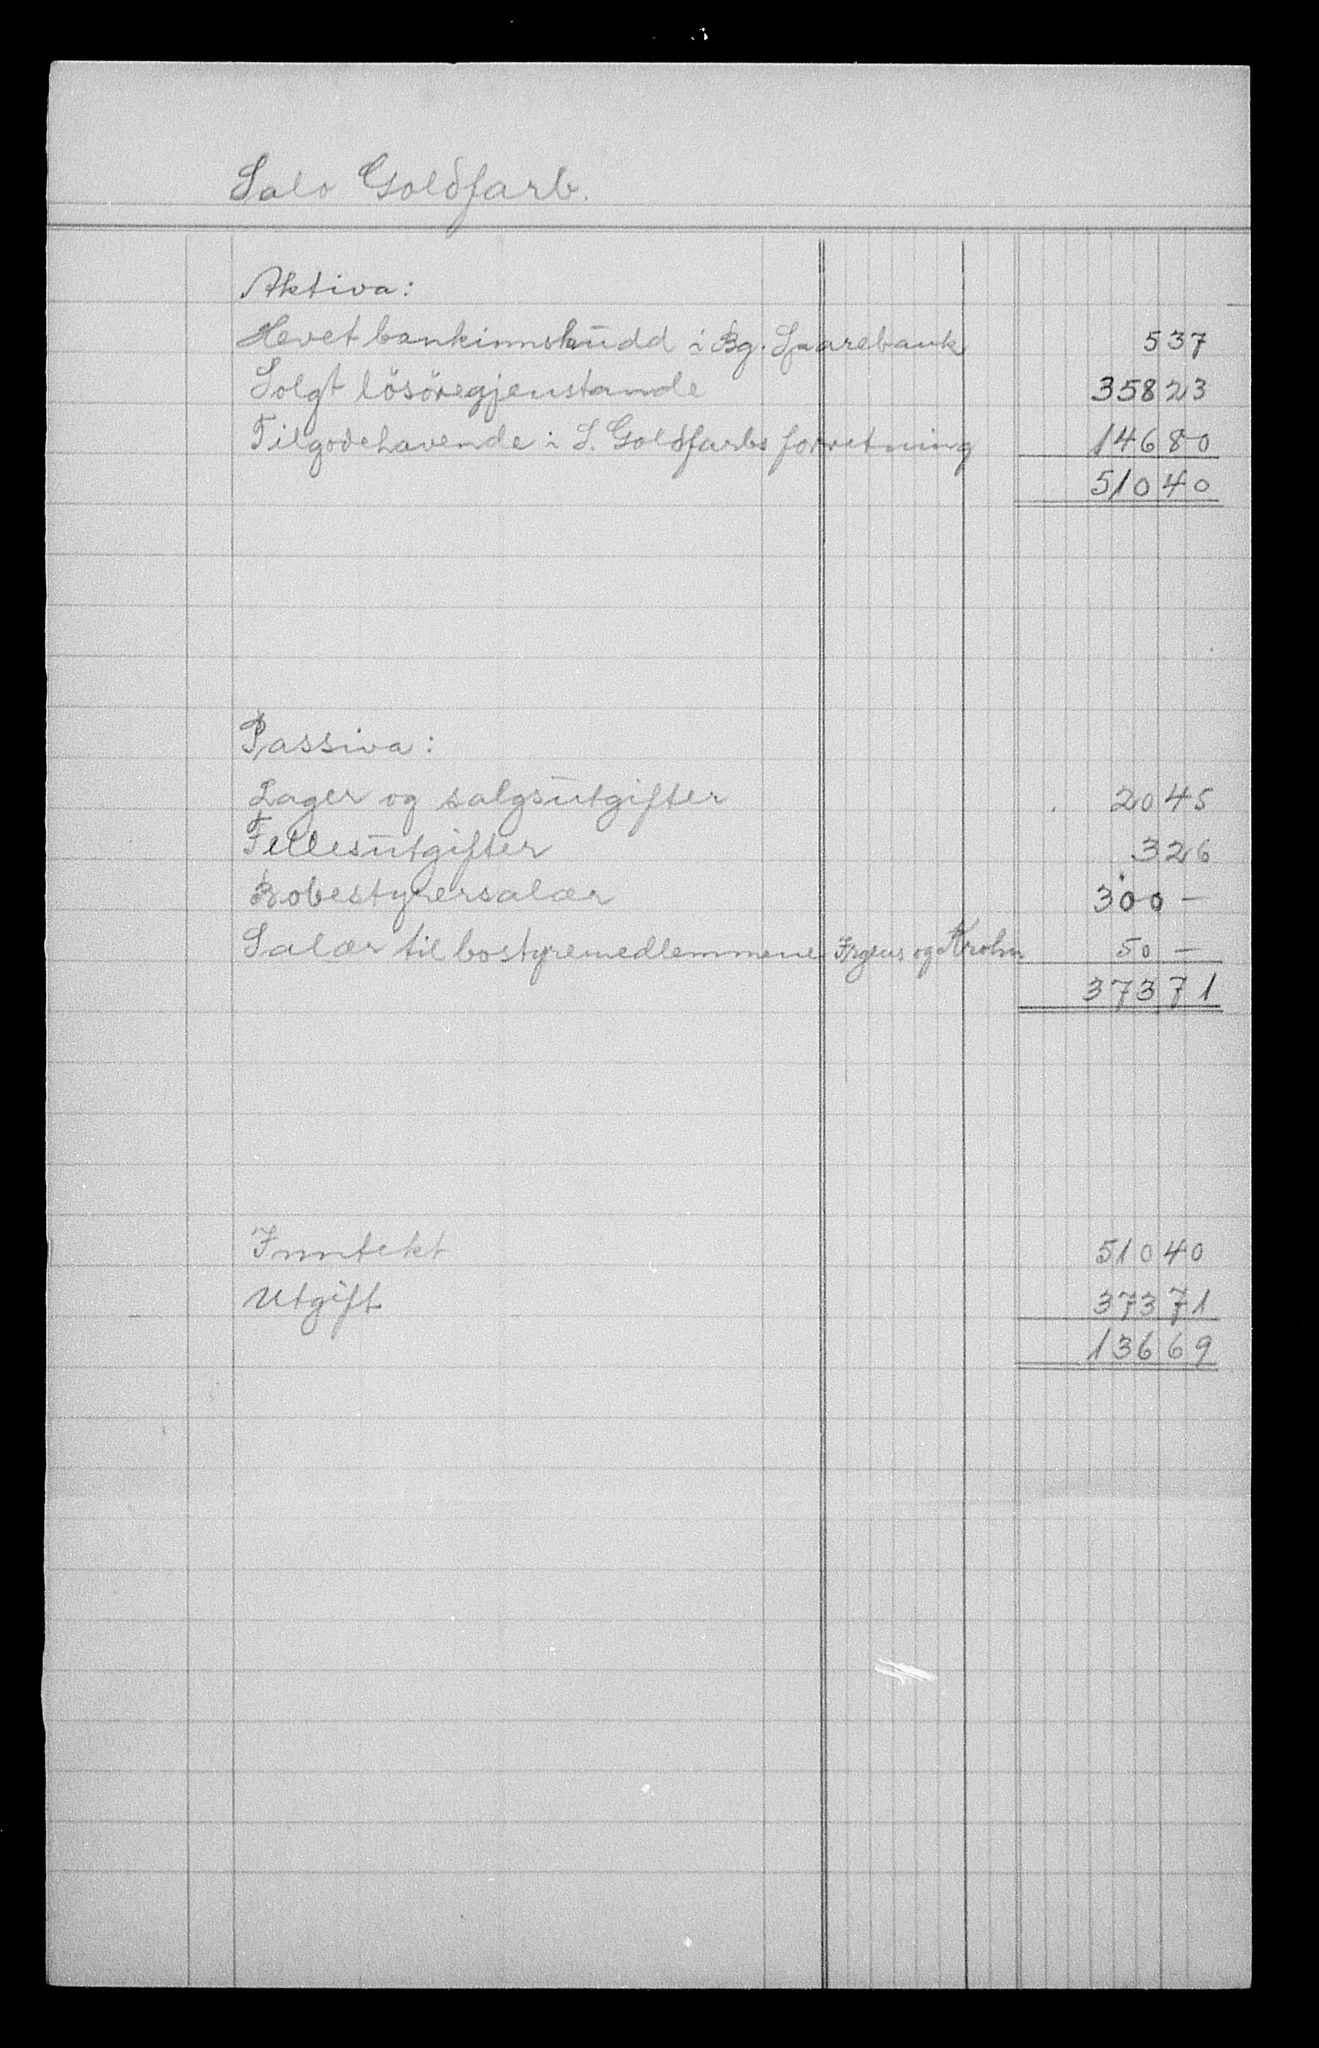 Salo Goldfarb.
Aktiva:
Hevet bankinnskudd i Bg. Sparebank 5 37
Solgt lösöregjenstande 358 23
Tilgodehavende i S. Goldfarbs forretning 146 80
510 40
Passiva:
Lager og salgsutgifter 20 45
Fellesutgifter 3 26
Bobestyrersalær 300 —
Salær til bostyremedlemmene Irgens og Krohn 50 —
373 71
Inntekt 510 40
Utgift 373 71
136 69